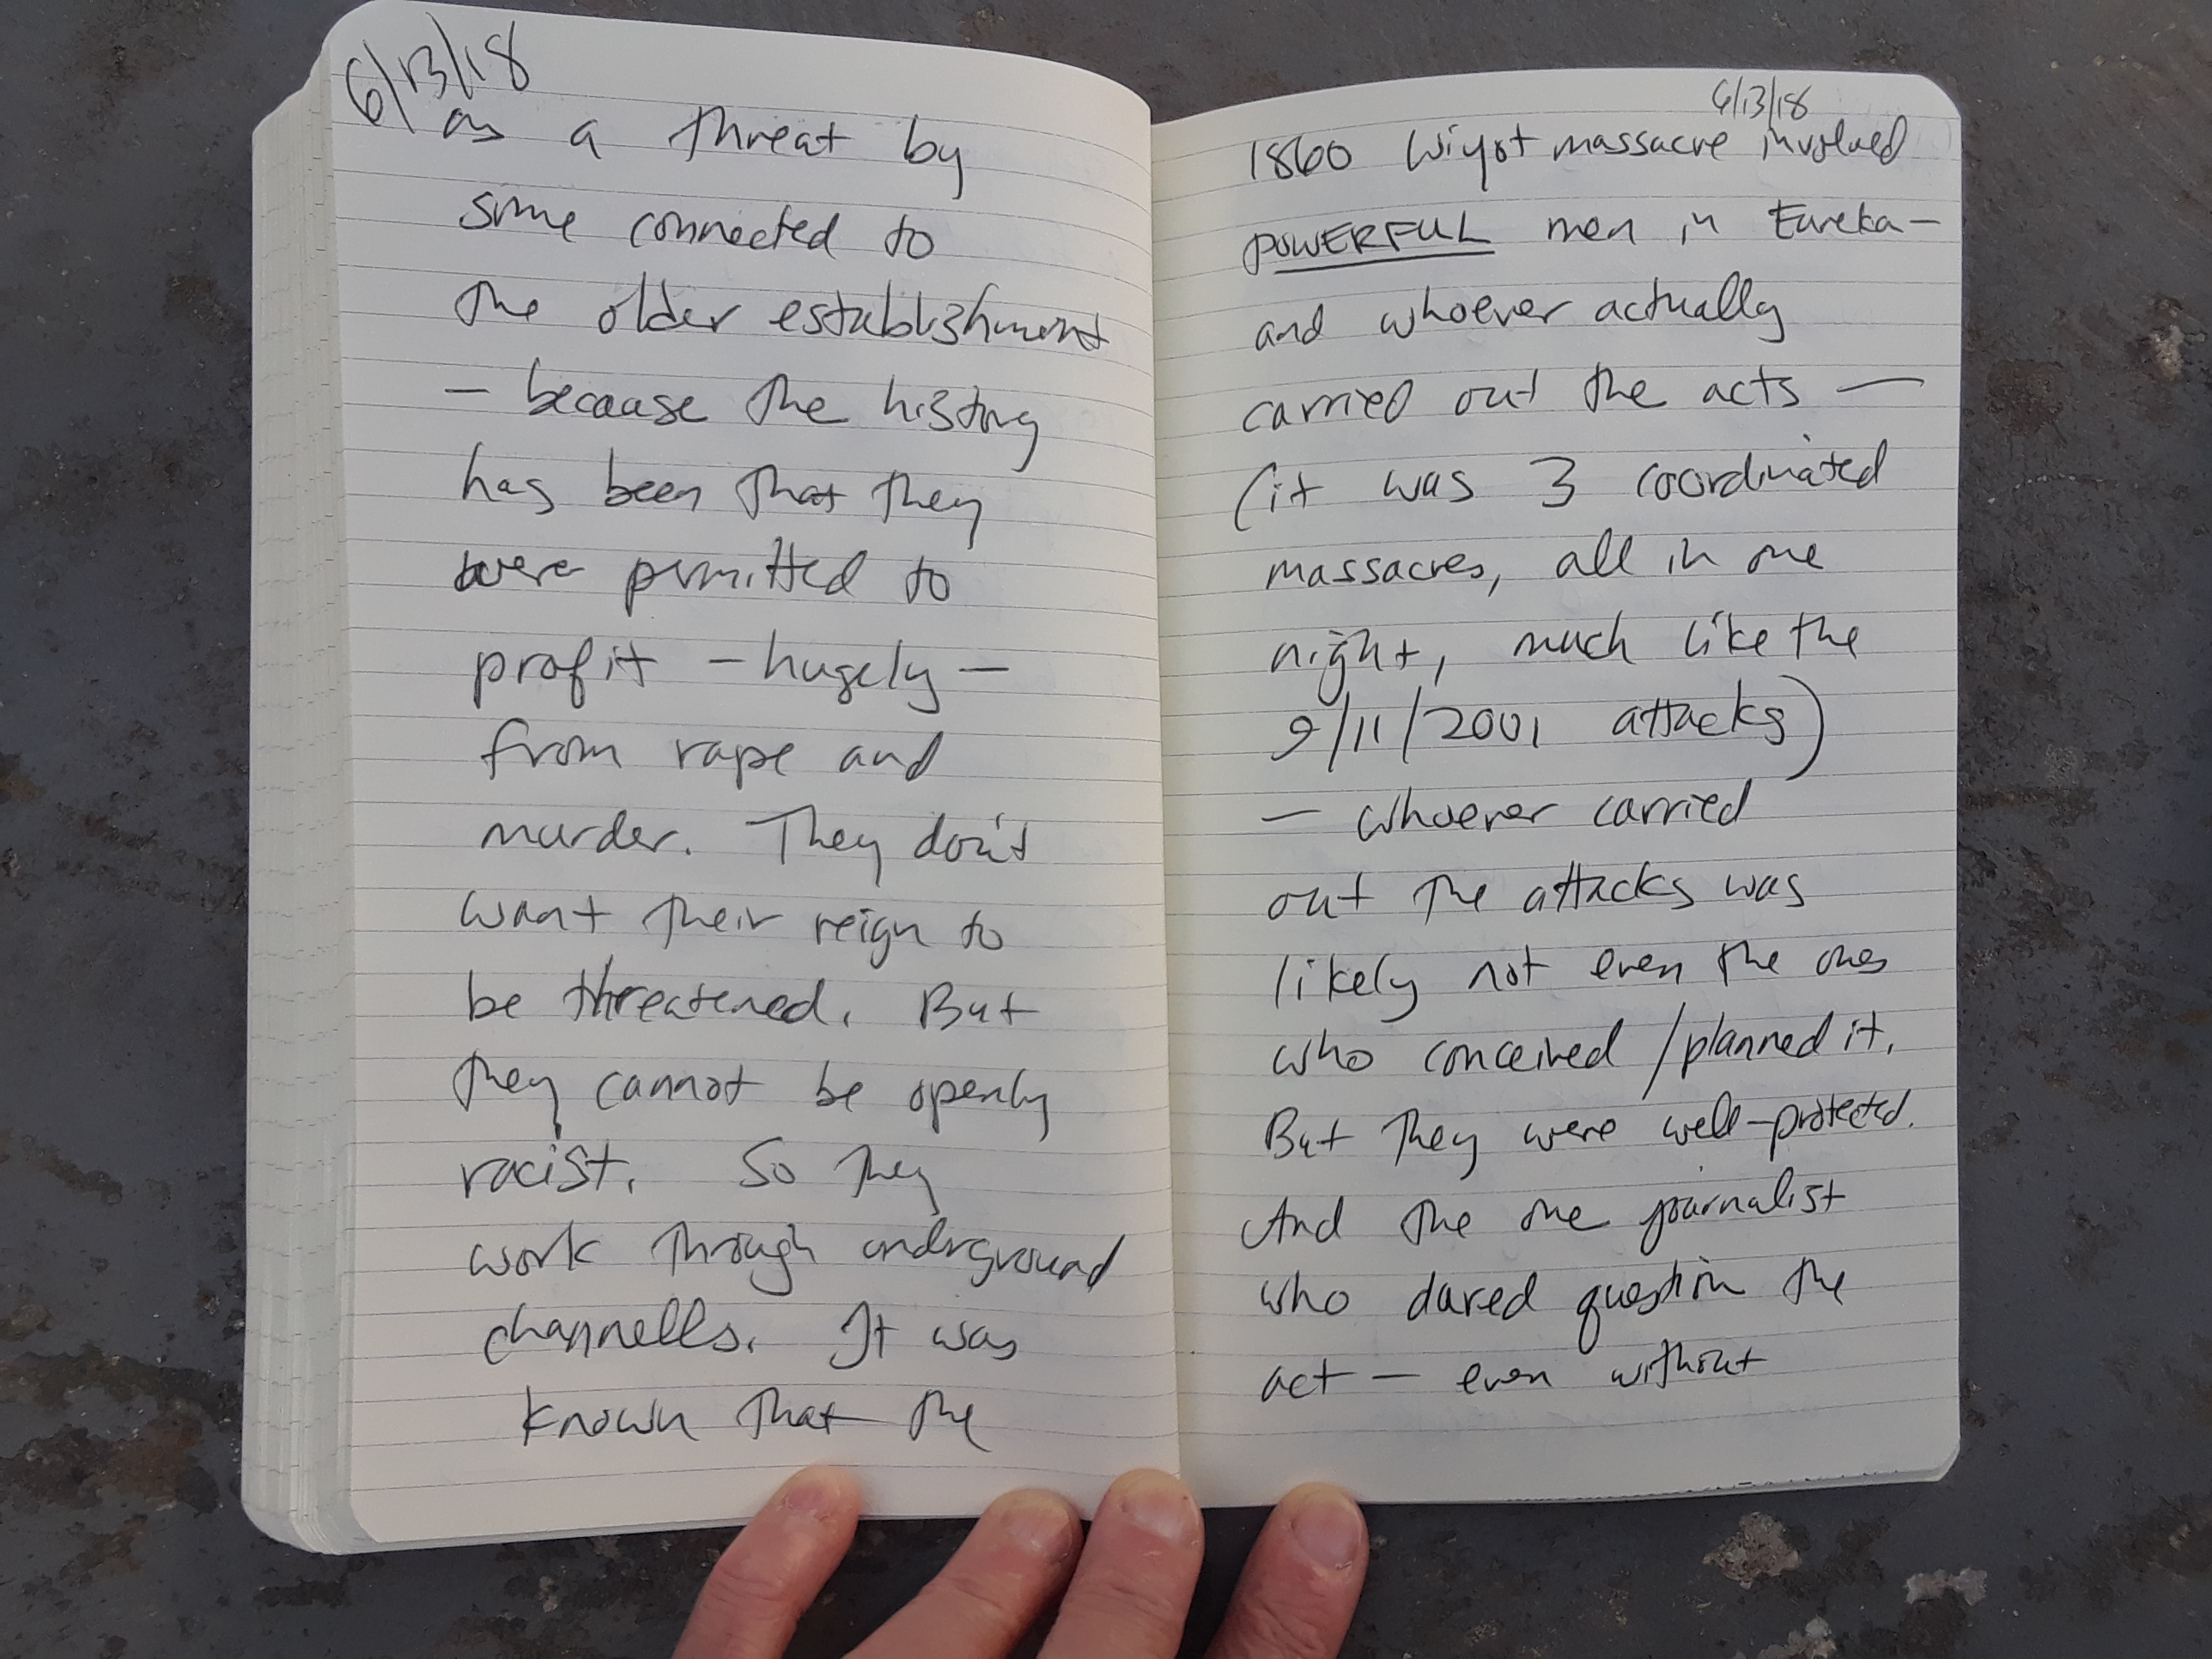 6/13/18
as a threat by
some connected to
the older establishment
— because the history
has been that they
were permitted to
profit – hugely –
from rape and
murder. They don't
want their reign to
be threatened. But
they cannot be openly
racist. So they
work through underground
channells. It was
known that the
6/13/18
1860 Wiyot massacre involved
POWERFUL men in Eureka –
and whoever actually
carried out the acts —
(it was 3 coordinated
massacres, all in one
night, much like the
9/11/2001 attacks)
— whoever carried
out the attacks was
likely not even the ones
who conceived / planned it.
But they were well-protected.
And the one journalist
who dared question the
act — even without